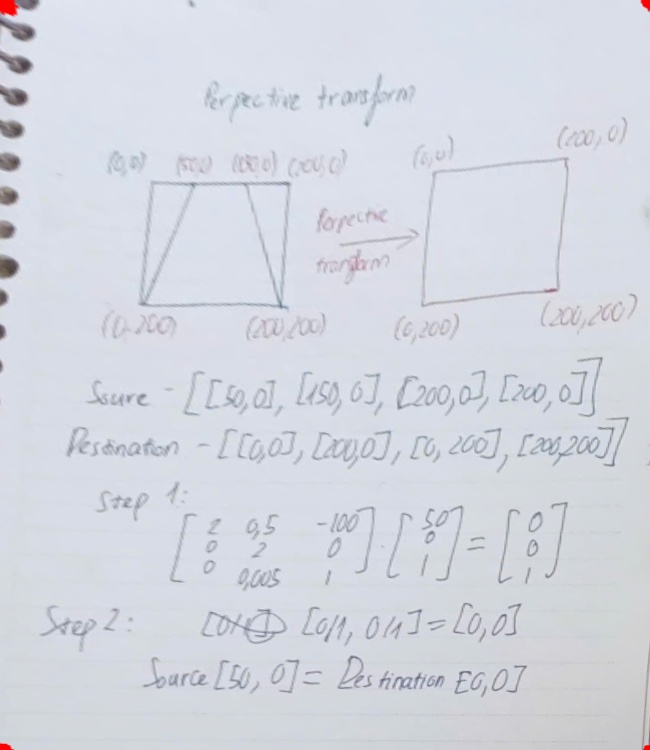 Perpective transform
(0,0) (50,0) (150,0) (200,0) (0,0) (200,0)
Perpective
transform
(0,200) (200,200) (0,200) (200,200)
Soure - [[50,0], [150,0], [200,0], [200,0]]
Destination - [[0,0], [200,0], [0,200], [200,200]]
Step 1:
[2 0,5 -100] [50] [0]
[0 2 0] . [0] = [0]
[0 0,005 1] [1] [1]
Step 2: [0/1, 0/1] = [0,0]
Source [50, 0] = Destination [0,0]